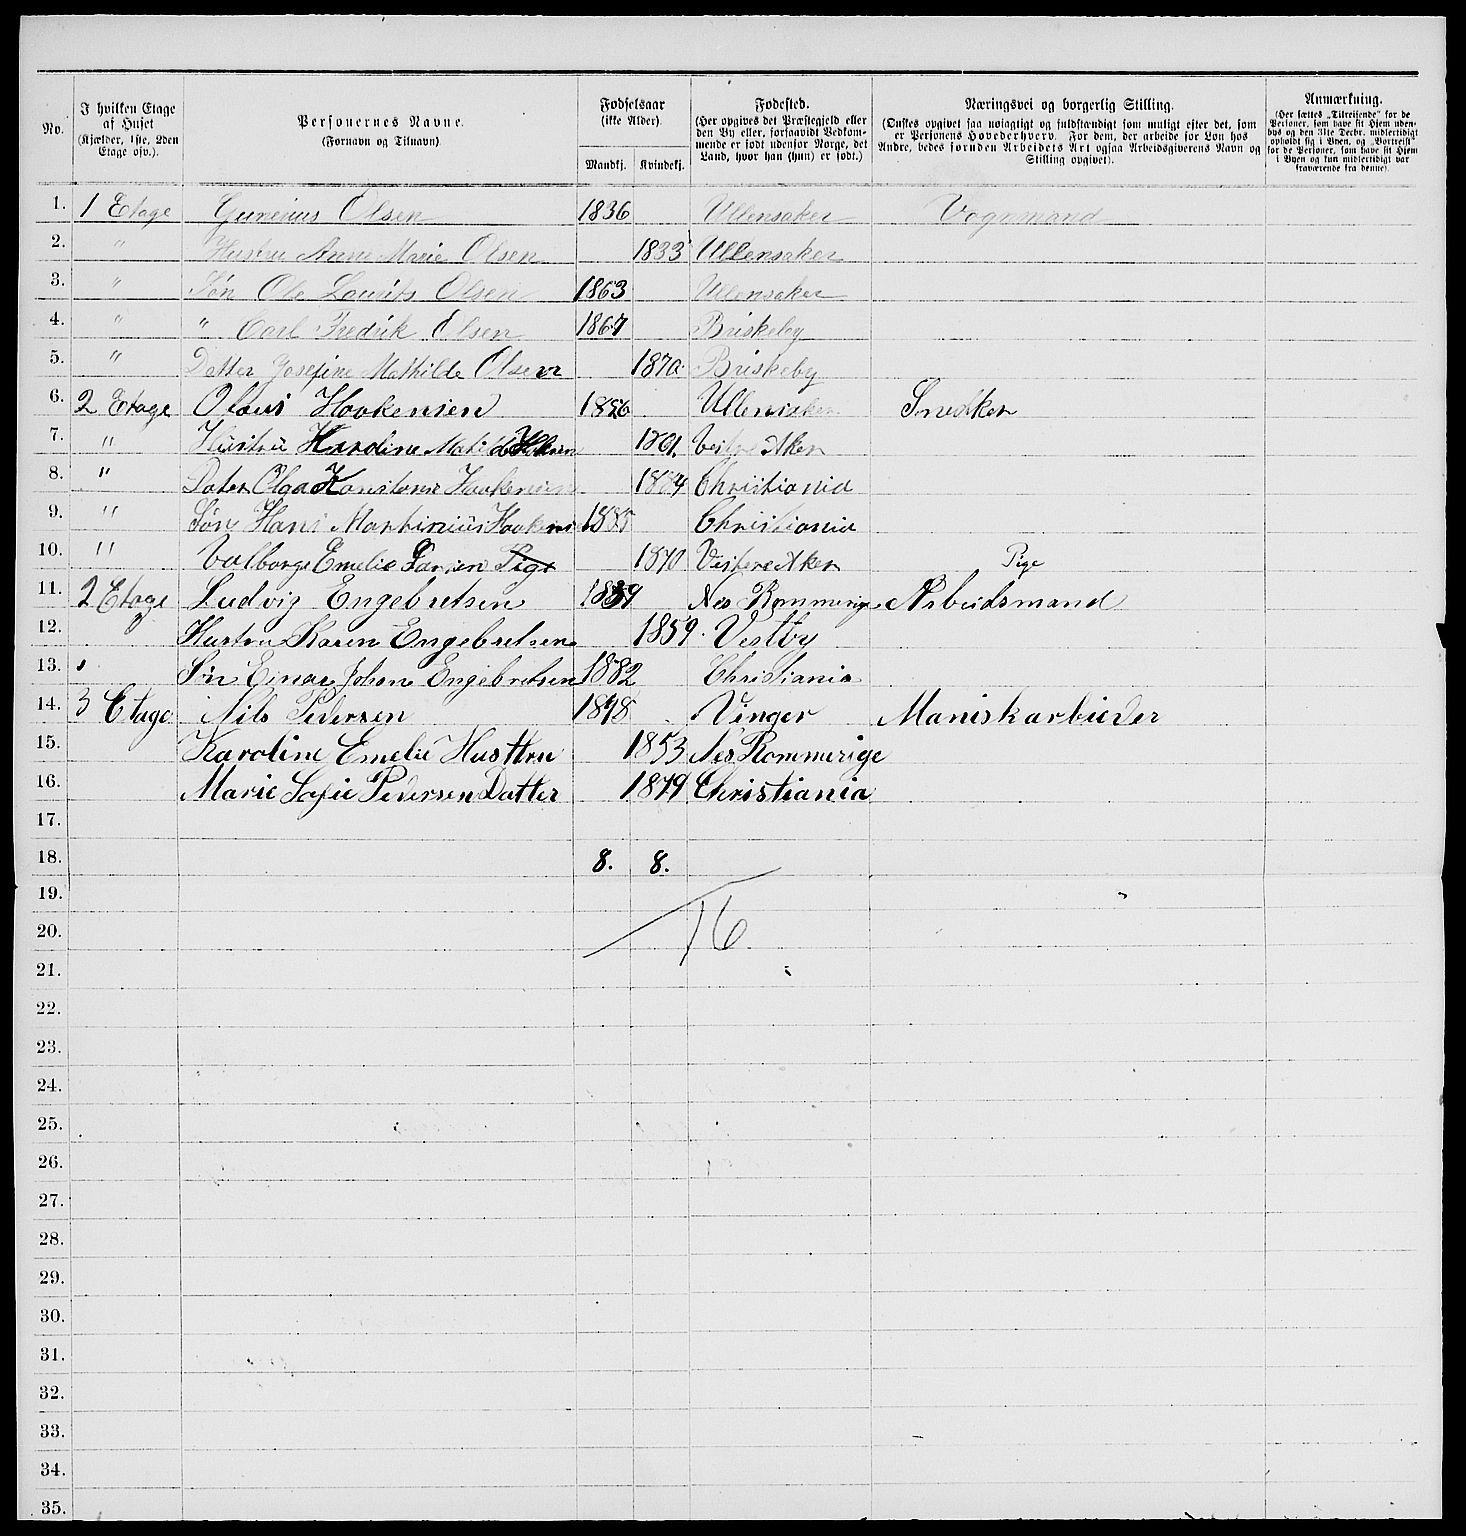 No. I hvilken Etage af Huset (Kjælder, 1ste, 2den Etage osv.). Personernes Navne. (Fornavn og Tilnavn). Fødselsaar (ikke Alder). Mandkj. Kvindekj. Fødested. (Her opgives det Præstegjeld eller den By eller, forsaavidt Vedkommende er født udenfor Norge, det Land, hvor han (hun) er født.) Næringsvei og borgerlig Stilling. (Ønskes opgivet saa nøiagtigt og fuldstændigt som muligt efter det, som er Personens Hovederhverv. For dem, der arbeide for Løn hos Andre, bedes foruden Arbeidets Art ogsaa Arbeidsgiverens Navn og Stilling opgivet). Anmærkning. (Her sættes „Tilreisende“ for de Personer, som have sit Hjem udenbys og den 31te Decbr. midlertidigt opholdt sig i Byen, og „Bortreist“ for de Personer, som have sit Hjem i Byen og kun midlertidigt var fraværende fra denne).
1. 1 Etage Gunerius Olsen 1836 Ullensaker Vognmand
2. " Hustru Anne Marie Olsen 1833 Ullensaker
3. " Søn Ole Laurits Olsen 1863 Ullensaker
4. " " Carl Fredrik Olsen 1867 Briskeby
5. " Datter Josefine Mathilde Olsen 1870 Briskeby
6. 2 Etage Olaus Haakensen 1856 Ullensaker Snedker
7. " Hustru Karoline 1861. Vestre Aker
8. " Dater Olga Haakensen 1884 Christiania
9. " Søn Hans Martinius Haakensen 1885 Christiania
10. " Valborge Emelie Pige 1870 Vestere Aker Pige
11. 2 Etage Ludvig Engebretsen 1859 Nes Rommerige Arbeidsmand
12. Hustru Karen Engebretsen 1859. Vestby
13. Søn Einar Johan Engebretsen 1882 Christiania
14. 3 Etage Nils Pedersen 1848 Vinger Maniskarbieder
15. Karoline Emelie Husttru 1853 Nes Rommerige
16. Marie Sofie Pedersen Datter 1879 Christiania
17.
18. 8. 8.
19.
20. 16
21.
22.
23.
24.
25.
26.
27.
28.
29.
30.
31.
32.
33.
34.
35.